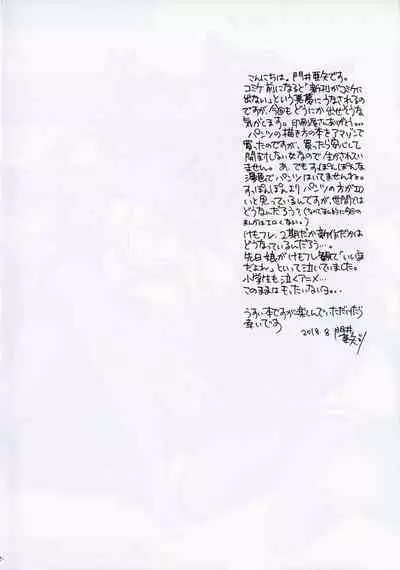 こんにちは。門井亜矢です。
コミケ前になると「新刊がコミケに
出ない」という悪夢にうなされるの
ですが、今回もどうにか出せそうな
気がします。印刷屋さんありがとう…
パンツの描き方の本をアマゾンで
買ったのですが、買ったら安心して
開きもしない女なので生かされてい
ません。あ、でもすっぽんぽんな
漫画でパンツはいてませんね。
すっぽんぽんよりパンツの方がエロい
と思っているんですが、世間では
どうなんだろう?
まんがはエロくない!)
けもフレ、2期だか新作だかは
どうなっているんだろう…。
先日娘がけもフレ観て「いい話
だよね」といって泣いていました。
小学生も泣くアニメ…
このままはもったいないよ。。
うすい本ですが楽しんでいただけたら
幸いです
2018.8 門井亜矢